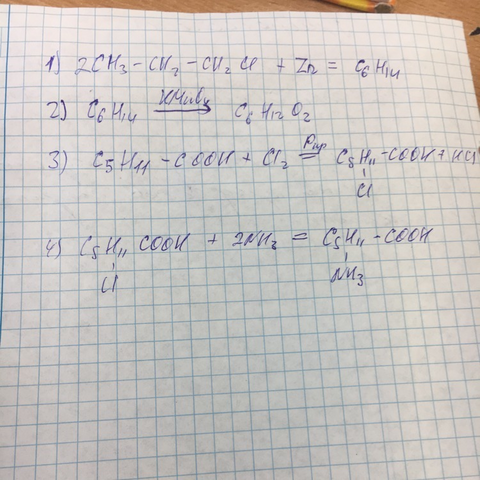 1) 2CH₃-CH₂-CH₂Cl + Zn = C₆H₁₄
2) C₆H₁₄ KMnO₄ C₆H₁₂O₂
3) C₅H₁₁-COOH + Cl₂ = Ркр C₅H₁₁-COOH + HCl
Cl
4) C₅H₁₁ COOH + 2NH₂ = C₅H₁₁-COOH
Cl NH₃